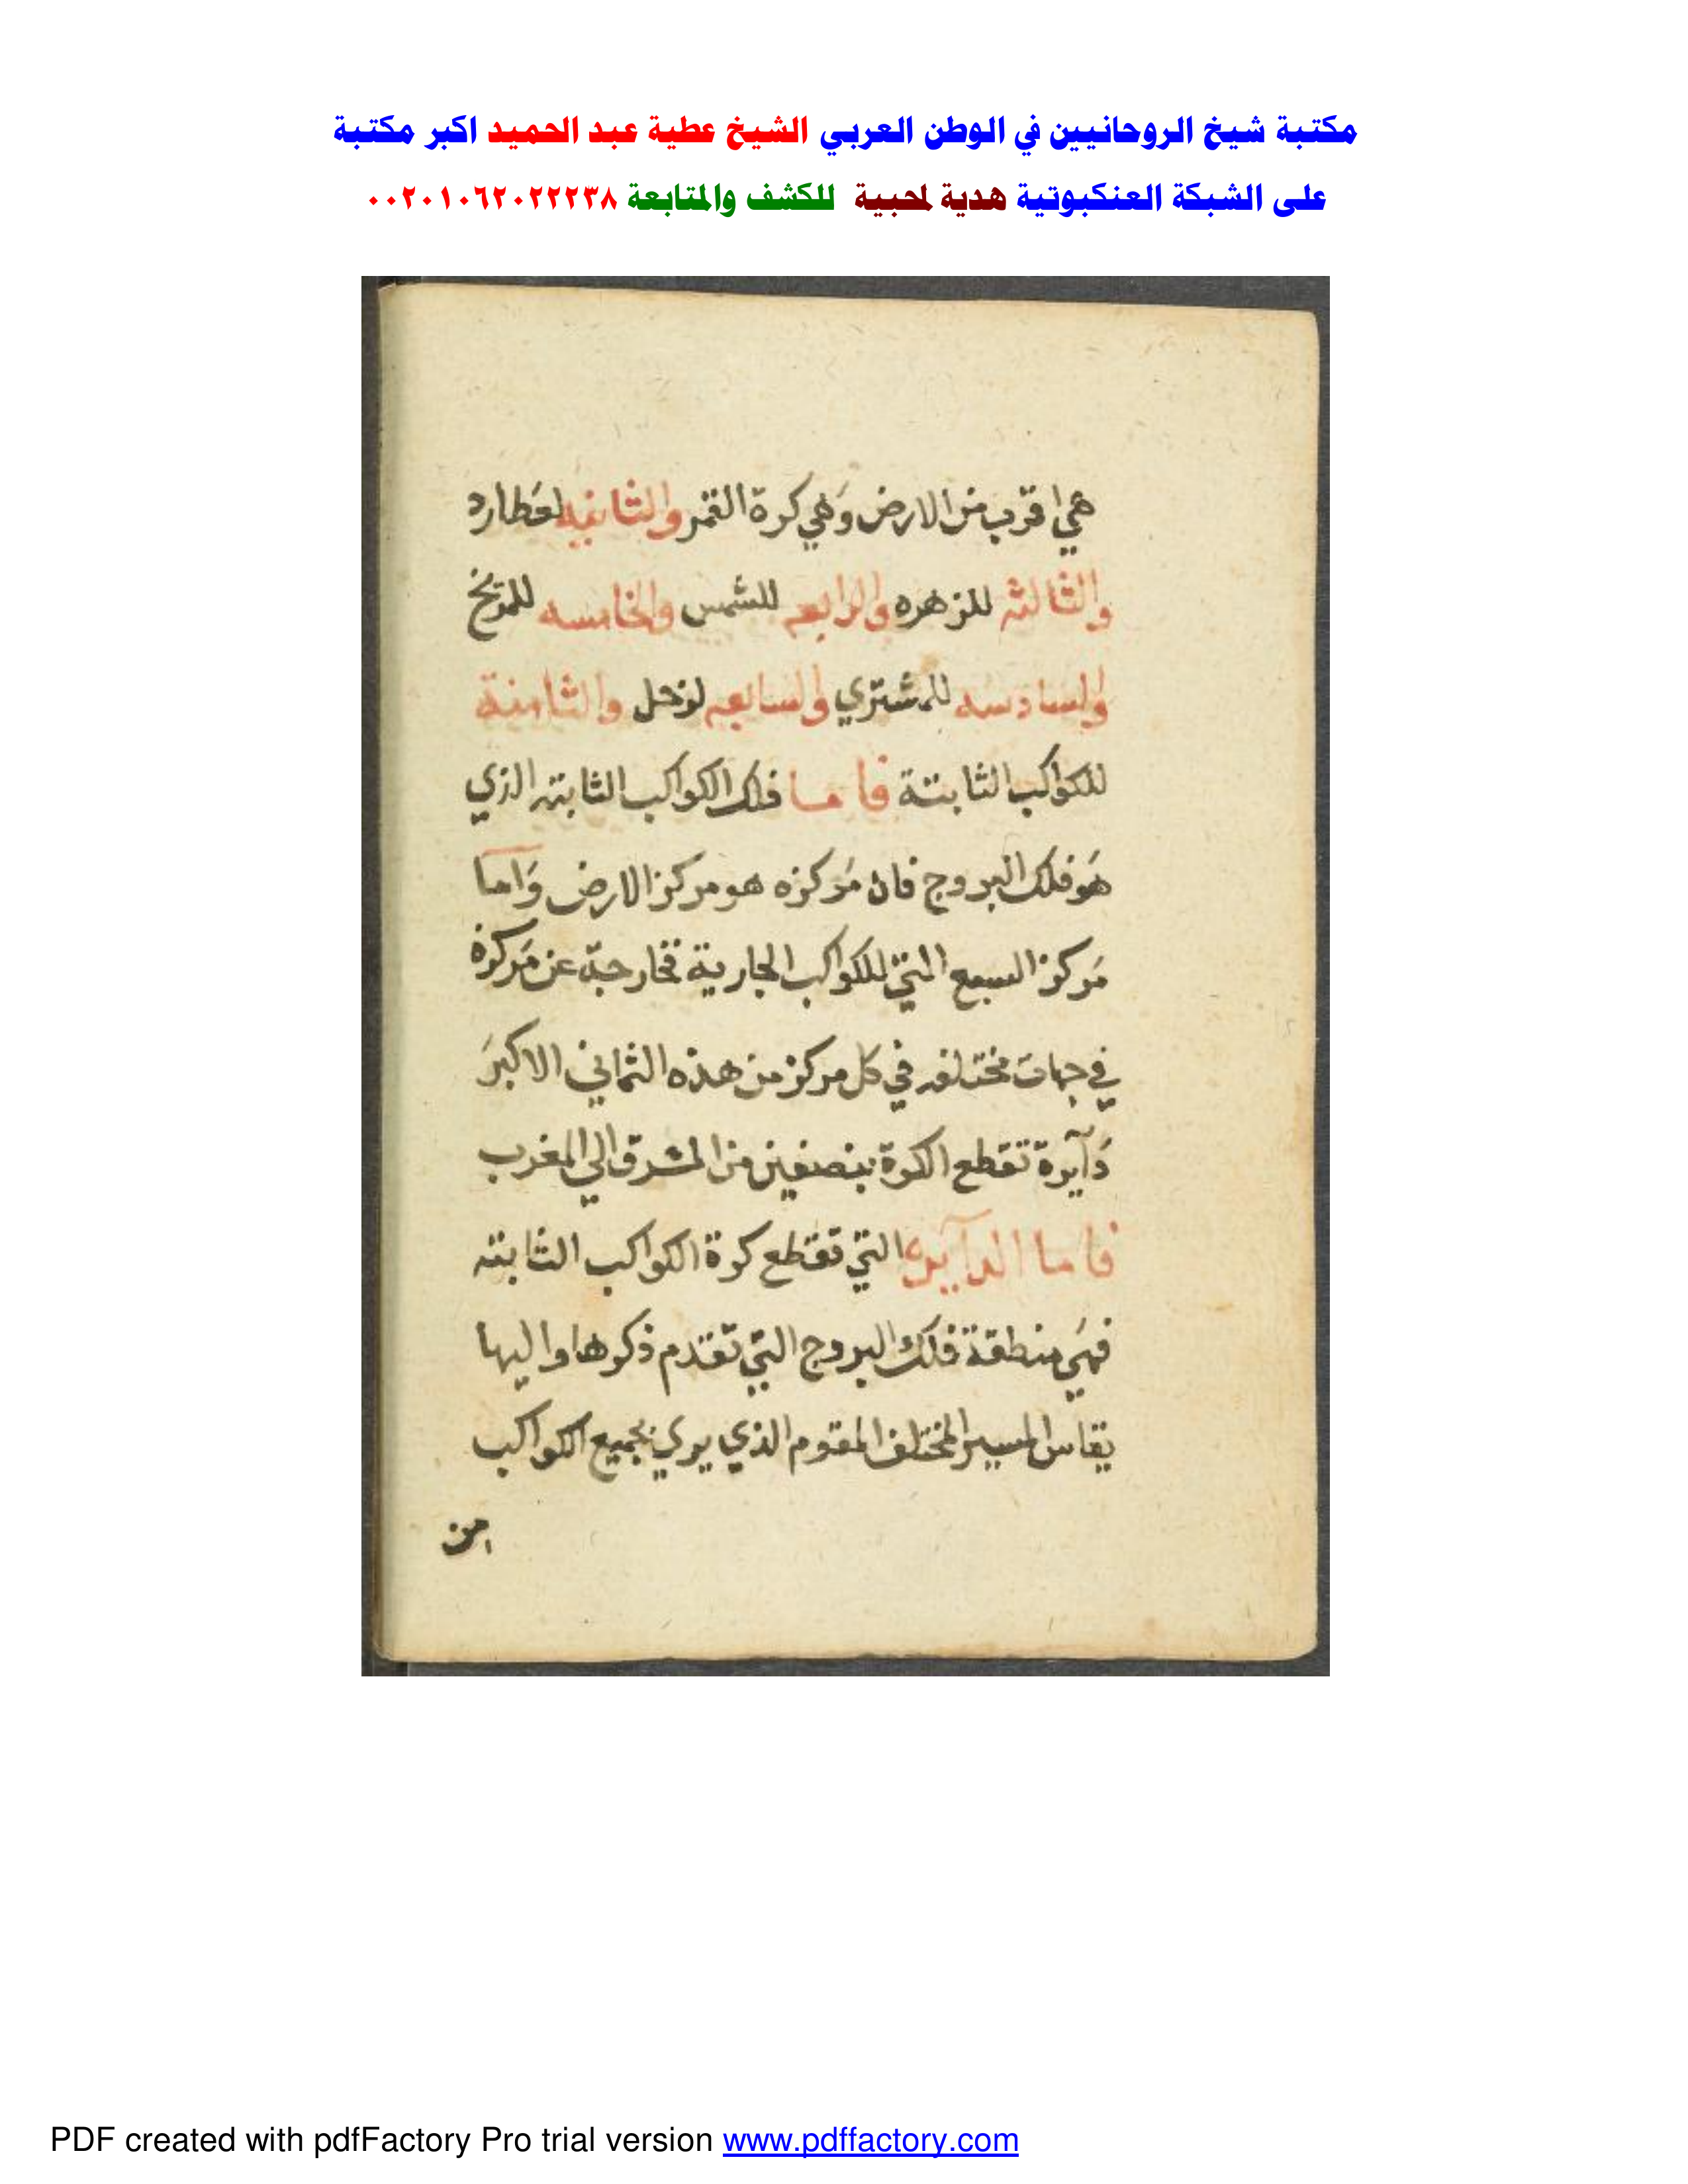 مكتبة شيخ الروحانيين في الوطن العربي الشيخ عطية عبد الحميد اكبر مكتبة
على الشبكة العنكبوتية هدية لمحبية للكشف والمتابعة ٠٠٢٠١٠٦٢٠٢٢٢٣٨
هي اقرب من الارض وَهي كرة القمر والثانيه لعَطارد
والثالثه للزهره والرابعه للشمس والخامسه للمريخ
والسادسه للمشتري والسابعه لزحل والثامنة
للكواكب الثابتة فاما فلك الكواكب الثابته الذي
هَو فلك البروج فان مَركزه هو مركز الارض وَآما
مَركز السبع التي للكواكب الجارية فخارجة عن مَركزة
في جهات مختلفه في كل مركز من هذه الثماني الاكبرَ
دَآيرة تقطع الكرة بنصفين من المشرق الي المغرب
فاما الدآيرة التي تقطع كرة الكواكب الثابته
فهيَ منطقة فلك البروج التي تقدم ذكرها واليها
يقاس المسير المختلف المقوم الذي يري بجميع الكواكب
من
PDF created with pdfFactory Pro trial version www.pdffactory.com